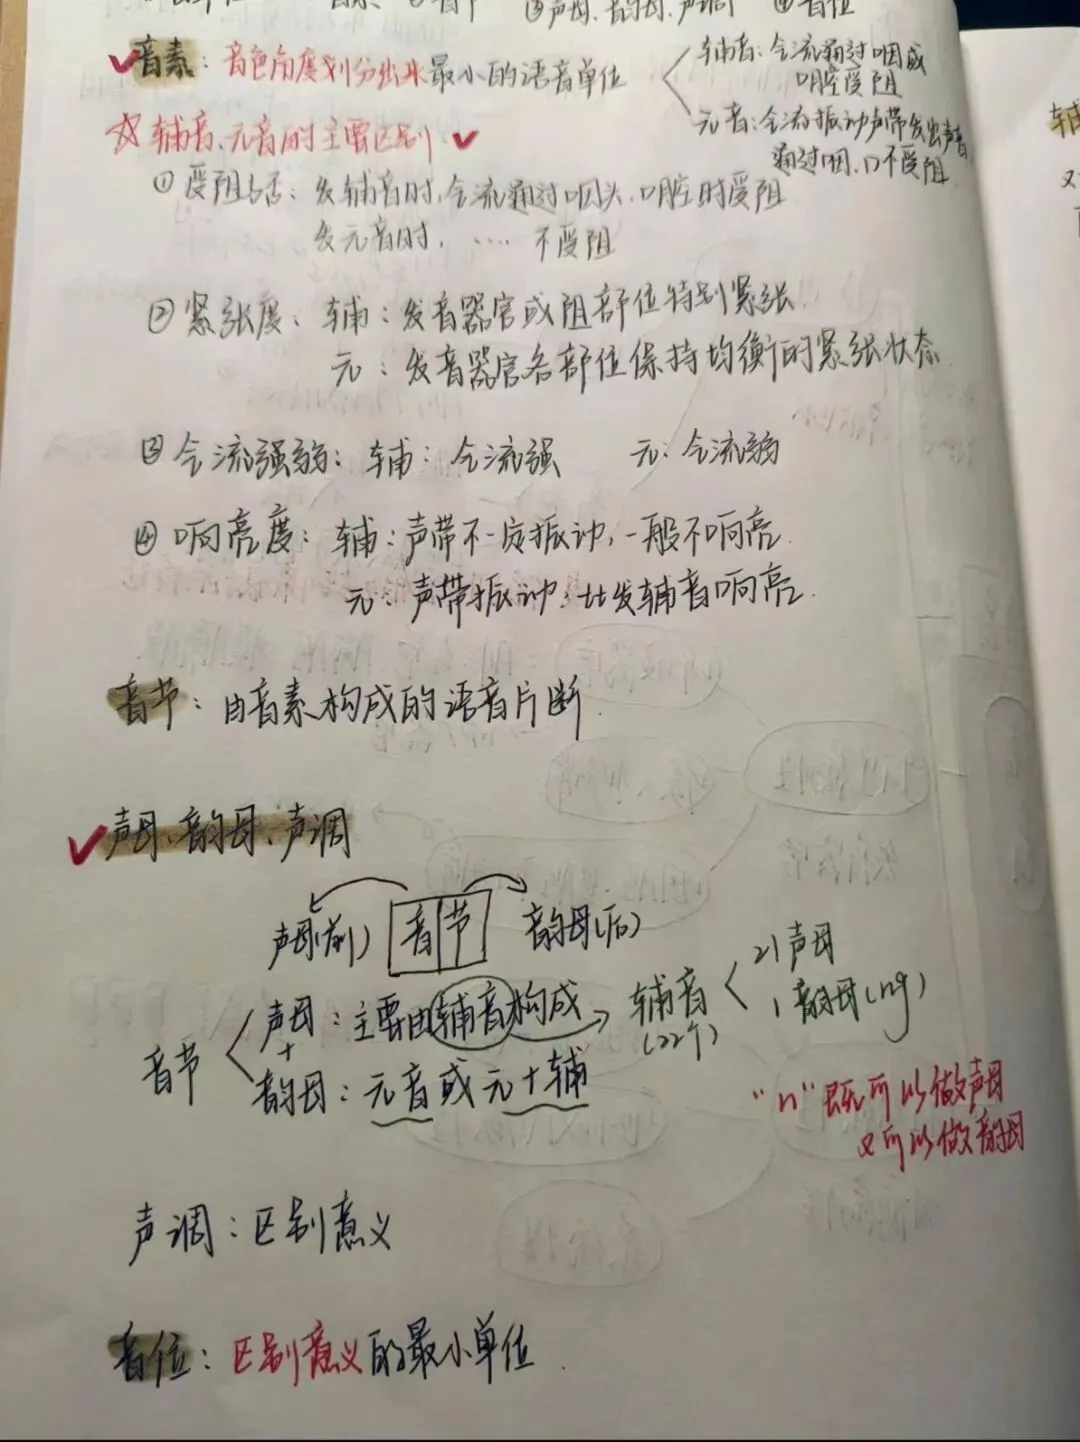 ③声母、韵母、声调 ④音位
音素：音色角度划分出来最小的语音单位
辅音：气流通过咽或
口腔受阻
元音：气流振动声带发出声音
通过咽、口不受阻
☆辅音、元音的主要区别
①受阻与否：发辅音时，气流通过咽头、口腔时受阻
发元音时，…… 不受阻
②紧张度：辅：发音器官成阻部位特别紧张
元：发音器官各部位保持均衡的紧张状态
③气流强弱：辅：气流强 元：气流弱
④响亮度：辅：声带不一定振动，一般不响亮
元：声带振动，比发辅音响亮
音节：由音素构成的语音片断
声母、韵母、声调
声母(前) 音节 韵母(后)
音节
声母：主要由辅音构成
+
韵母：元音或元+辅
辅音
(22个)
21声母
1韵母(ng)
"n"既可以做声母
又可以做韵母
声调：区别意义
音位：区别意义的最小单位